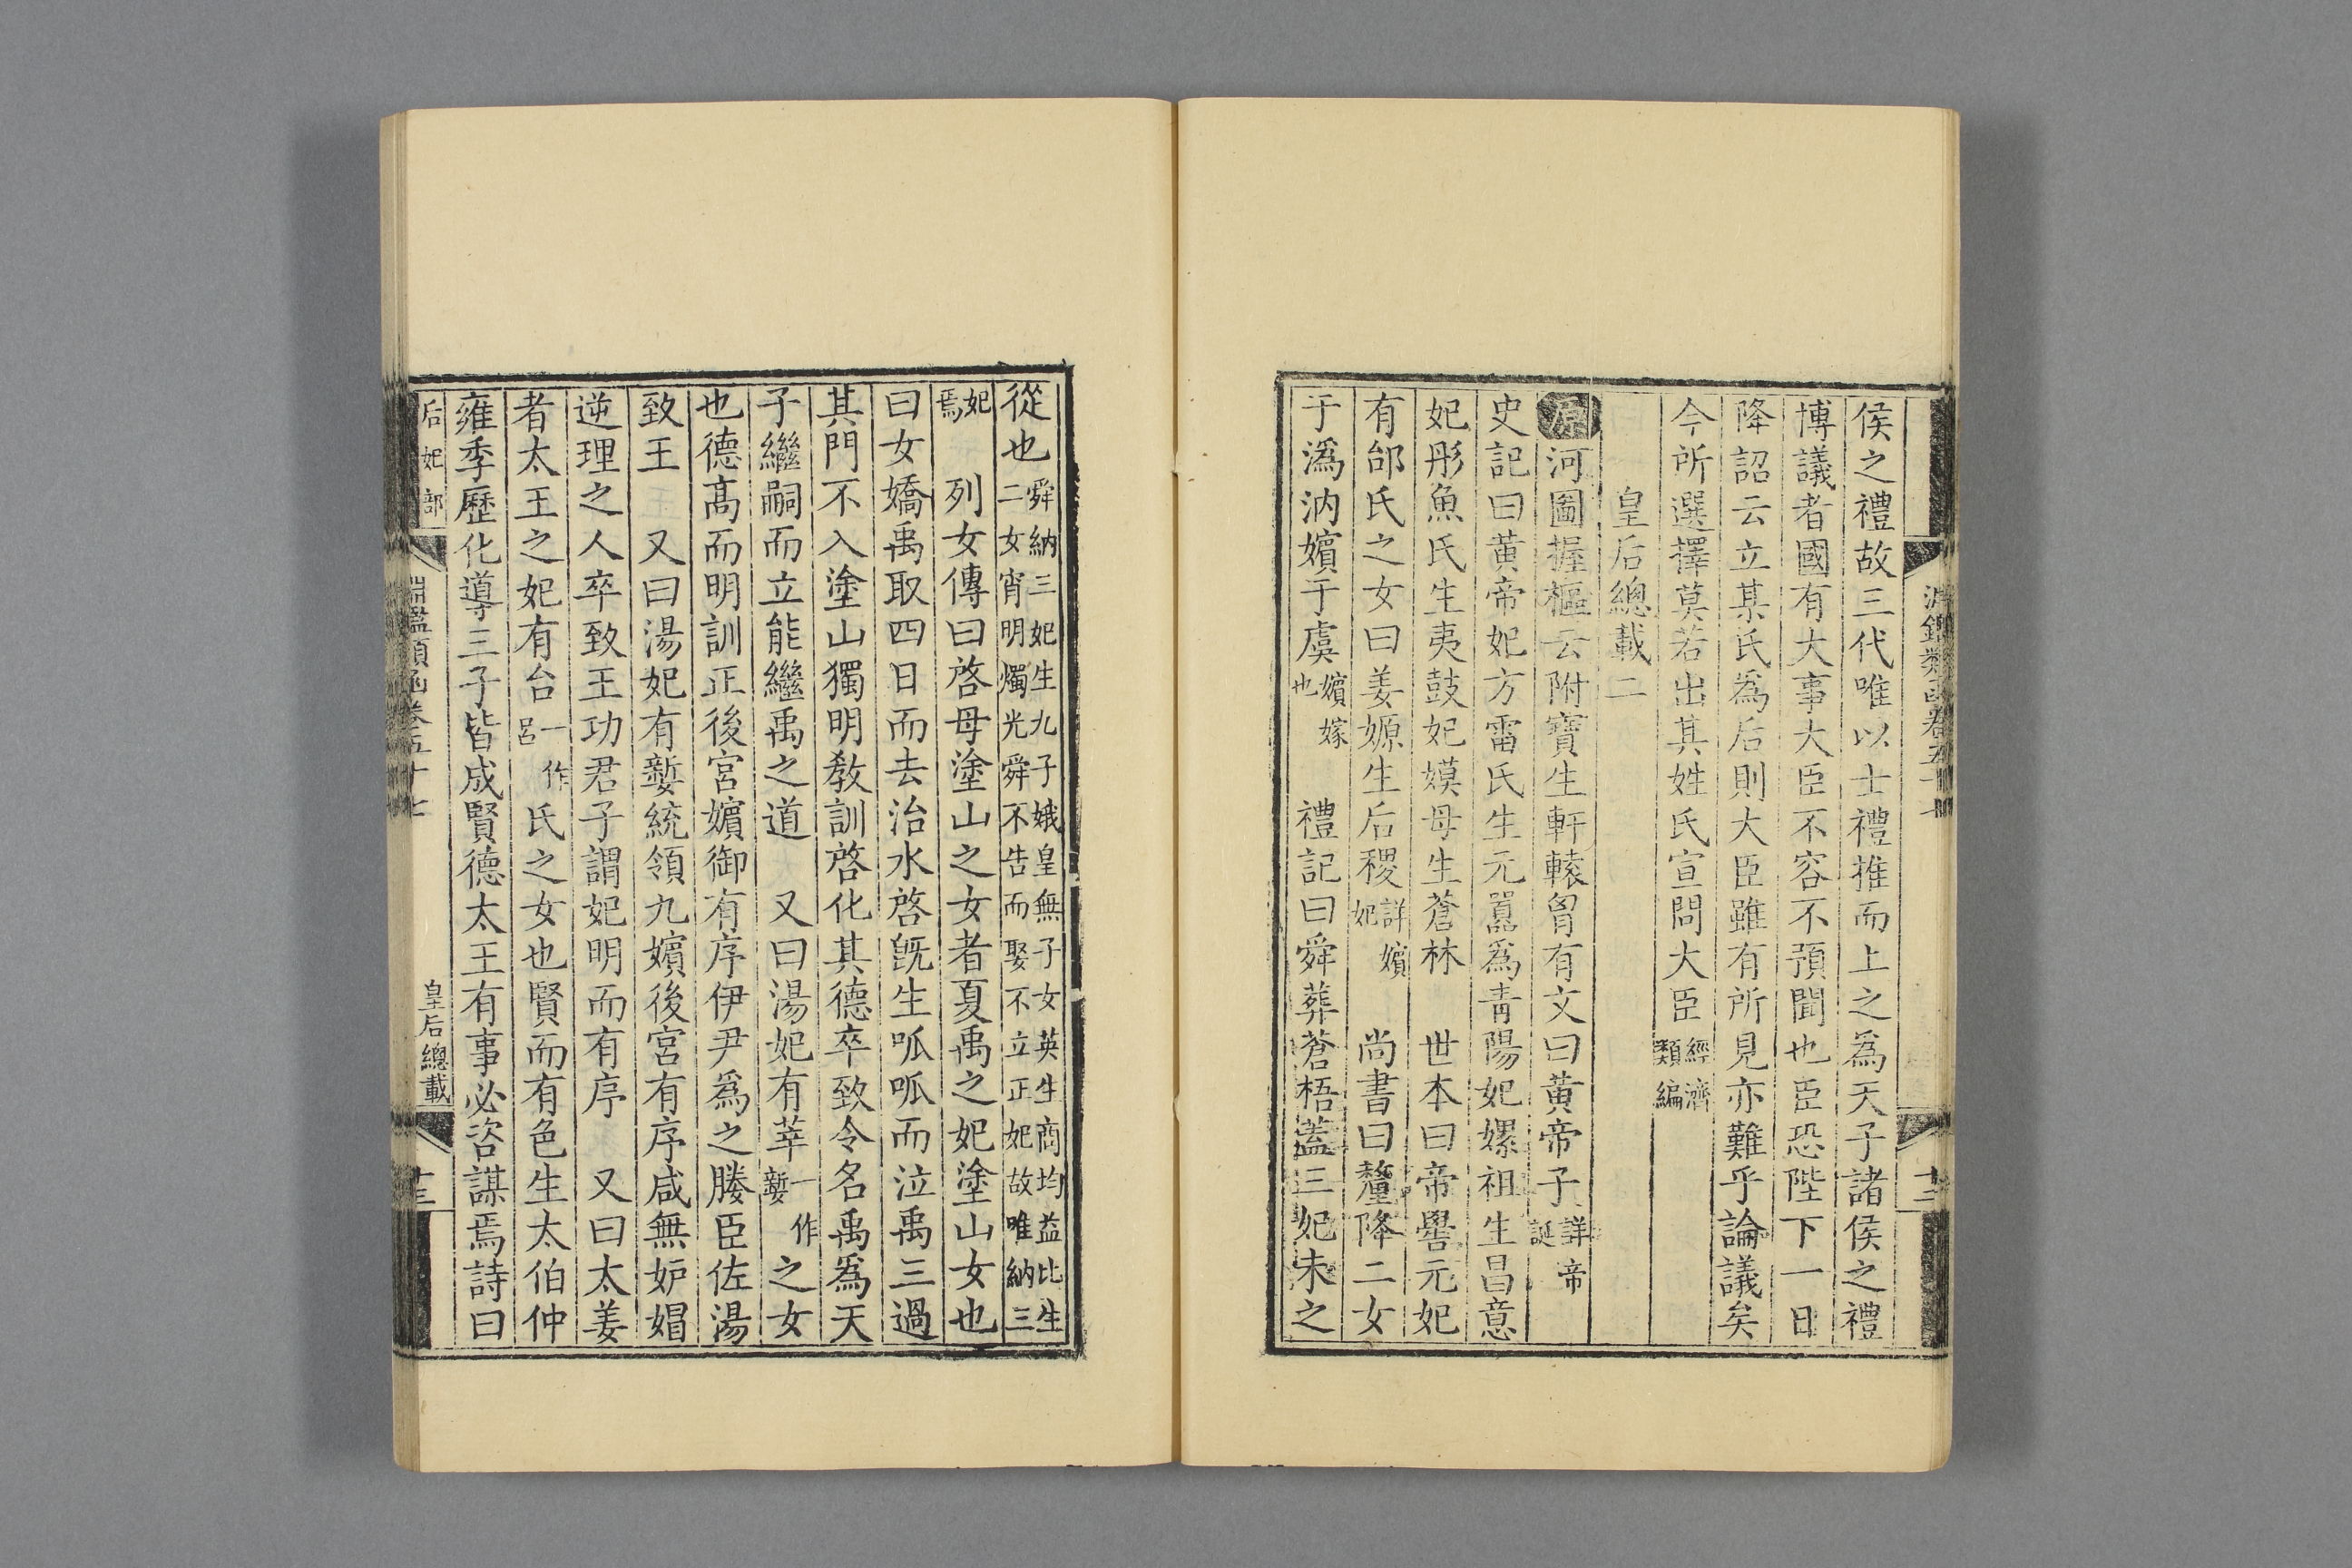 侯之禮故三代唯以士禮推而上之為天子諸侯之禮
博議者國有大事大臣不容不預聞也臣恐陛下一日
降詔云立某氏為后則大臣雖有所見亦難乎論議矣
今所選擇莫若出其姓氏宣問大臣經濟類編
皇后總載二
原河圖握樞云附寶生軒轅胷有文曰黃帝子詳帝誕
史記曰黃帝妃方雷氏生元囂為青陽妃嫘祖生昌意
妃彤魚氏生夷鼓妃嫫母生蒼林 世本曰帝嚳元妃
有邰氏之女曰姜嫄生后稷詳嬪妃 尚書曰釐降二女
于溈汭嬪于虞嬪嫁也 禮記曰舜葬蒼梧蓋三妃未之
從也舜納三妃生九子娥皇無子女英生商均益比生二女宵明燭光舜不告而娶不立正妃故唯納三
妃焉 列女傳曰啓母塗山之女者夏禹之妃塗山女也
曰女嬌禹取四日而去治水啓既生呱呱而泣禹三過
其門不入塗山獨明教訓啓化其德卒致令名禹為天
子繼嗣而立能繼禹之道 又曰湯妃有莘一作㜪之女
也德高而明訓正後宮嬪御有序伊尹為之媵臣佐湯
致王 又曰湯妃有㜪統領九嬪後宮有序咸無妒媢
逆理之人卒致王功君子謂妃明而有序 又曰太姜
者太王之妃有台一作呂氏之女也賢而有色生太伯仲
雍季歷化導三子皆成賢德太王有事必咨謀焉詩曰
后妃部 淵鑑類函卷五十七 皇后總載 十三